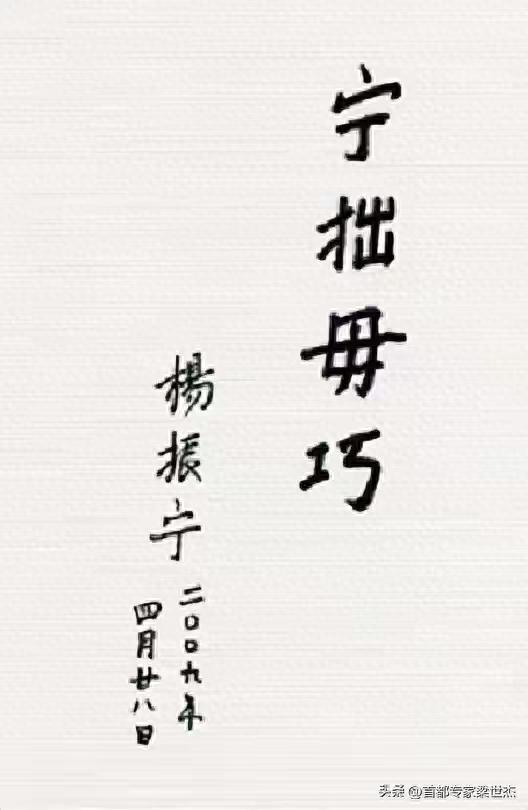 宁拙毋巧
楊振宁
二〇〇九年
四月廿八日
头条 @首都专家梁世杰